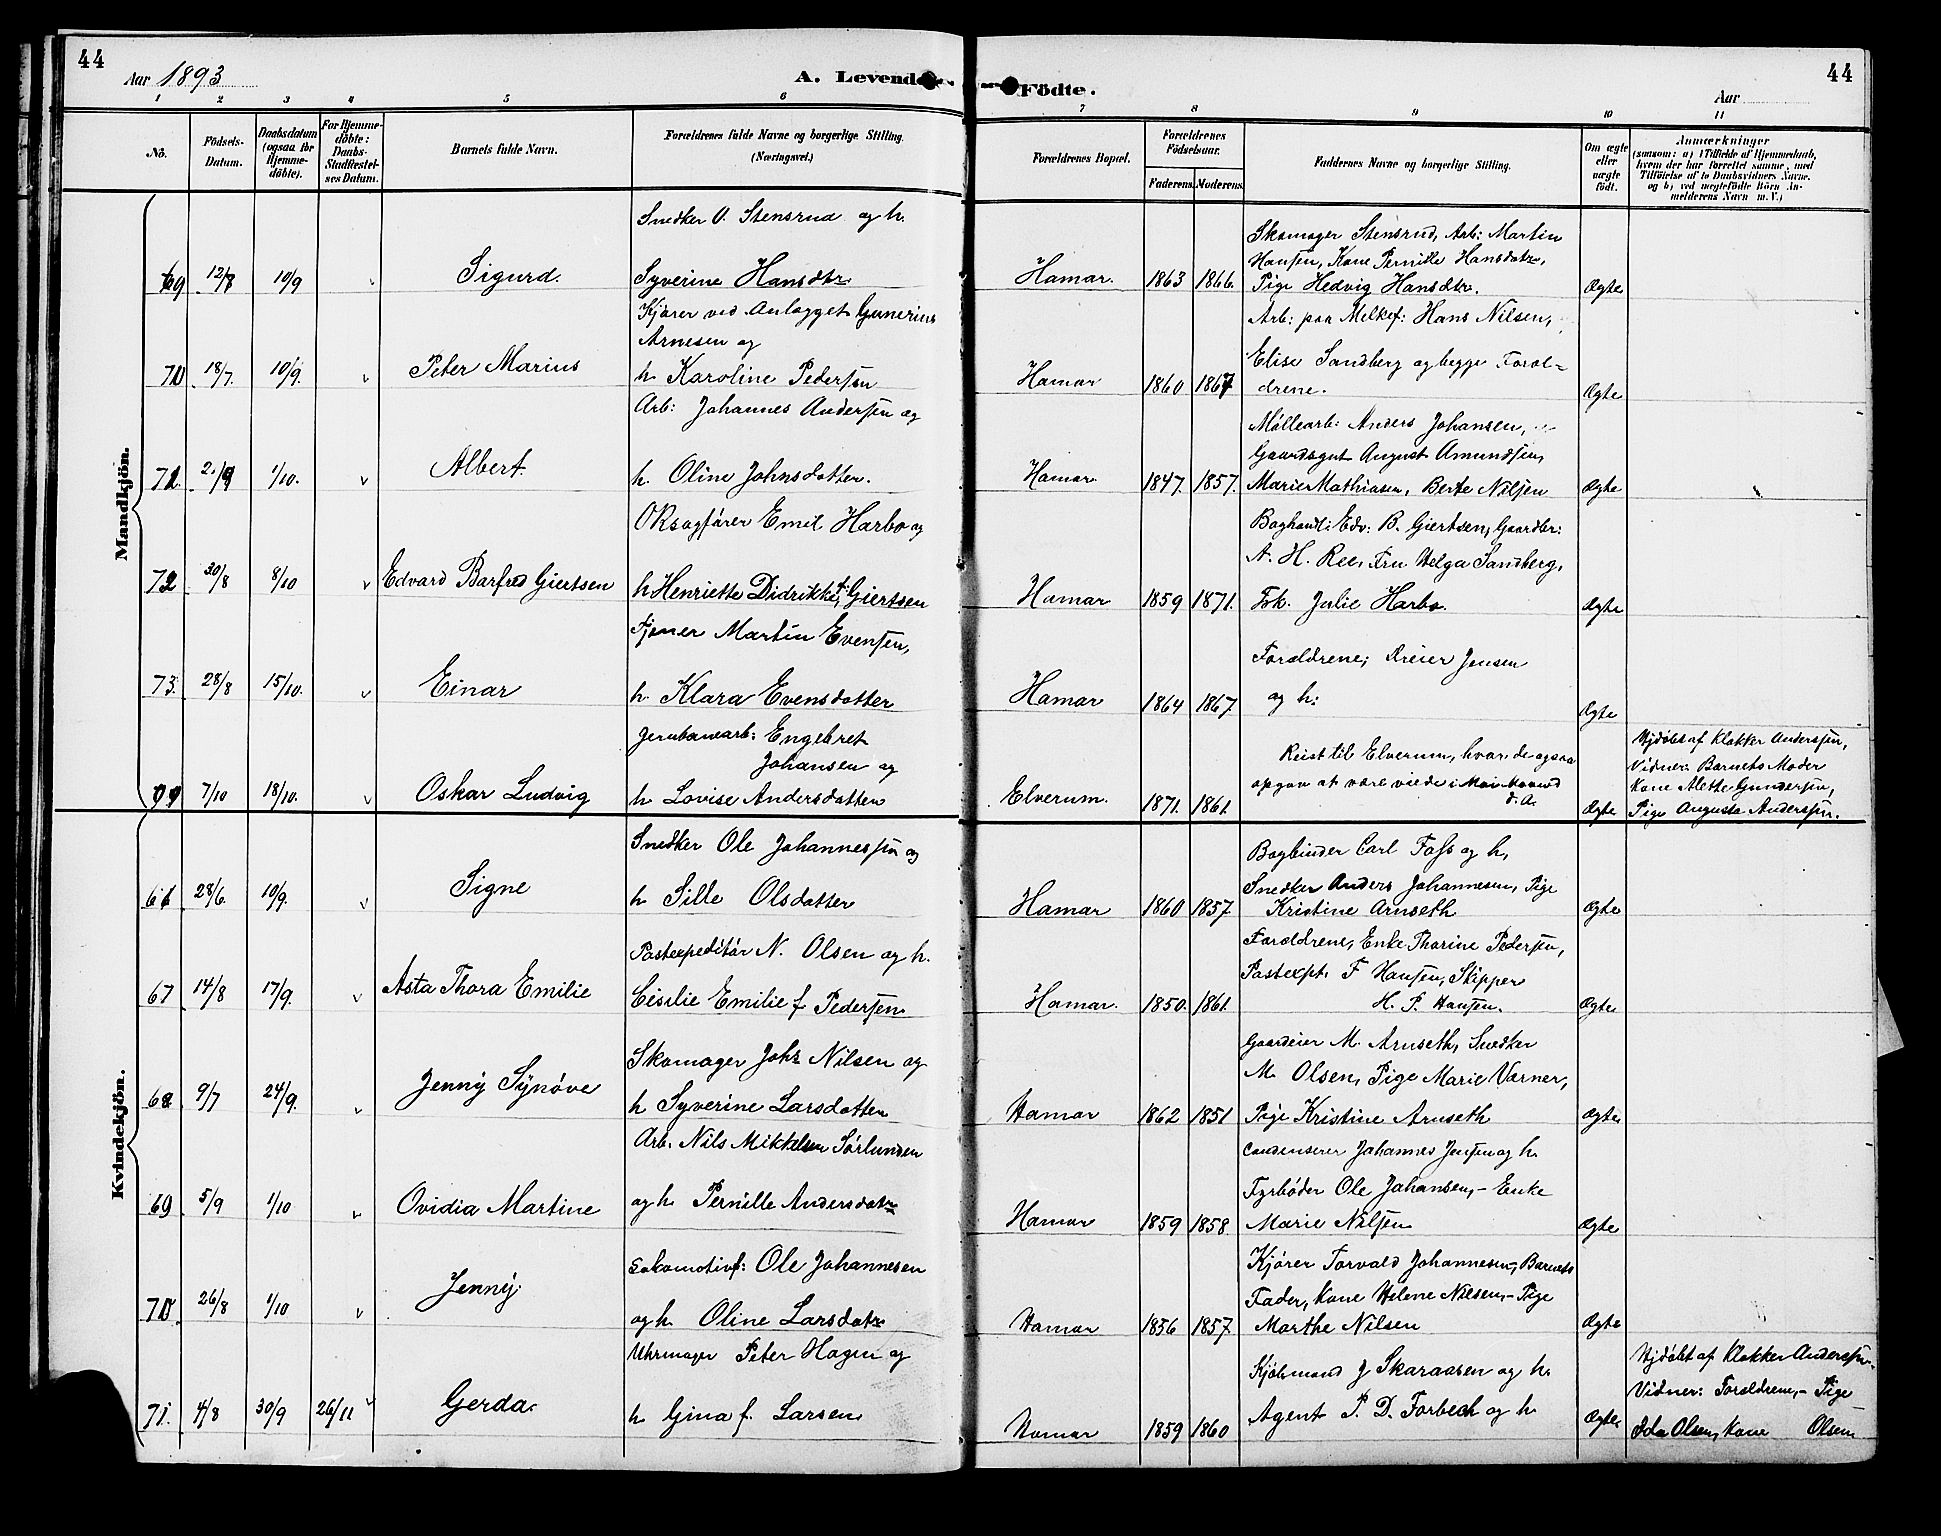 44
Aar 1893
A. Levende
Födte.
Aar
44
1 2 3 4 5 6 7 8 9 10 11
No.
Födsels-
Datum.
Daabsdatum
(ogsaa for
Hjemme-
döbte).
For Hjemme-
döbte:
Daabs-
Stadfæstel-
ses Datum.
Barnets fulde Navn.
Forældrenes fulde Navne og borgerlige Stilling.
(Næringsvei.)
Forældrenes Bopæl.
Forældrenes
Födselsaar.
Faderens. Moderens.
Faddernes Navne og borgerlige Stilling.
Om ægte
eller
uægte
födt.
Anmærkninger
(saasom: a) i Tilfælde af Hjemmedaab,
hvem der har forrettet samme, med
Tilföielse af to Daabsvidners Navne.
og b) ved uægtefödte Börn An-
melderens Navn m. V.)
Mandkjön.
69 12/8 10/9 Sigurd.
Snedker O. Stensrud og h.
Syverine Hansdtr.
Hamar. 1863 1866.
Skomager Stensrud, Arb: Martin
Hansen, Kone Pernille Hansdatr,
Pige Hedvig Hansdtr.
Ægte
70 18/7. 10/9. Peter Marius
Kjører ved Anlægget Gunerius
Arnesen og
h. Karoline Pedersen
Hamar 1860 1867
Arb: paa Melkef: Hans Nilsen,
Elise Sandberg og begge Foræl-
drene.
Ægte
71. 2/9 1/10. Albert.
Arb: Johannes Andersen og
h. Oline Johnsdatter.
Hamar 1847. 1857.
Møllearb: Anders Johansen,
Gaardsgut August Amundsen,
Marie Mathiasen, Berte Nilsen
Ægte
72 30/8 8/10 Edvard Barfred Giertsen
ORsagfører Emil Harbo og
h Henriette Didrikke f. Giertsen
Hamar 1859 1871.
Boghandl: Edv: B. Giertsen, Gaardbr:
A. H. Ree, Fru Helga Sandberg,
Frk. Julie Harbo.
Ægte
73. 28/8 15/10. Einar
Tjener Martin Evensen,
h. Klara Evensdatter
Hamar 1864 1867.
Forældrene; Dreier Jensen
og h.
Ægte
7/10 18/10. Oskar Ludvig
Jernbanearb: Engebret
Johansen og
h. Lovise Andersdatter
Elverum. 1871. 1861.
Reist til Elverum, hvor de ogsaa
opgav at være viede i Mai Maaned
d. A.
Ægte
Hjdøbt af Klokker Anderssen,
Vidner: Barnets Moder
Kone Alethe Gundersen,
Pige Augusta Anderssen.
Kvindekjön.
66 28/6. 10/9. Signe
Snedker Ole Johannessen og
h Sille Olsdatter
Hamar 1860 1857
Bogbinder Carl Foss og h,
Snedker Anders Johannesen, Pige
Kristine Arnseth
Ægte
67 14/8 17/9. Asta Thora Emilie
Postexpeditør N. Olsen og h.
Cecilie Emilie f Pedersen
Hamar. 1850. 1861.
Forældrene, Enke Thorine Pedersen,
Postexpt. F Hansen, Skipper
H. P. Hansen.
Ægte
68 9/7 24/9. Jenny Synøve
Skomager Johs Nilsen og
h Syverine Larsdatter
Hamar 1862 1851
Gaardeier M. Arnseth, Snedker
M. Olsen, Pige Marie Værner,
Pige Kristine Arnseth
Ægte
69 5/9 1/10 Ovidia Martine
Arb. Nils Mikkelsen Sørlunden
og h Pernille Andersdatr
Hamar 1859 1858.
Condenserer Johannes Jensen og h.
Fyrbøder Ole Johansen, - Enke
Marie Nilsen
Ægte
70. 26/8 1/10 Jenny
Lokomotivf: Ole Johannesen
og h. Oline Larsdatr
Hamar 1856 1857.
Kjører Torvald Johannesen, Barnets
Fader, Kone Helene Nilsen, - Pige
Marthe Nilsen
Ægte
71. 4/8 30/9 26/11 Gerda.
Uhrmager Peter Hagen og
h. Gina f. Larsen
Hamar 1859 1860
Kjøbmand J Skaraasen og h.
Agent P. D. Forbech og h.
Ægte
Hjdøbt af Klokker Anderssen.
Vidner: Forældrene, - Pige
Ida Olsen, Kone Olsen